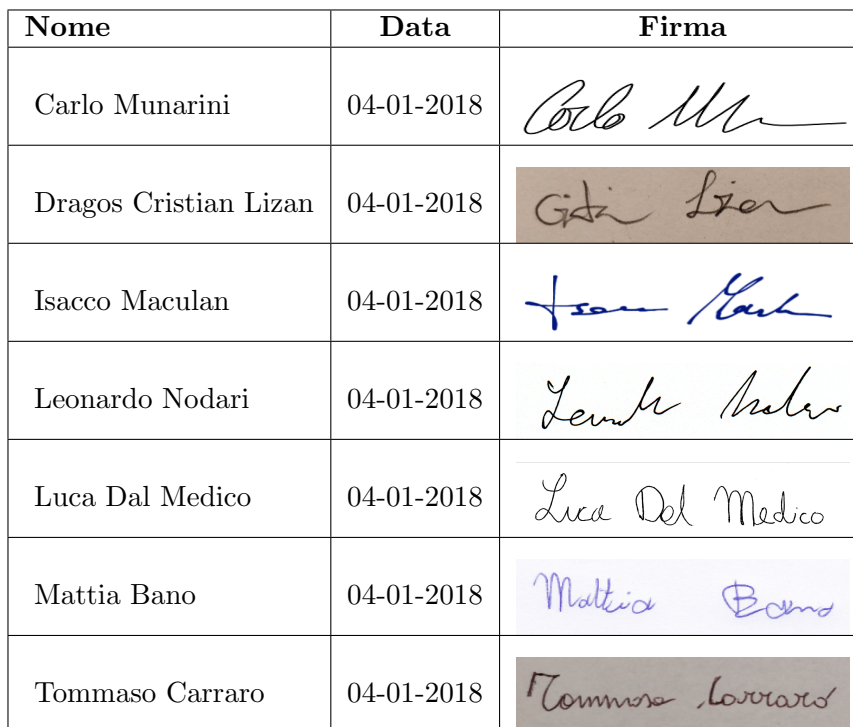 Nome Data Firma
Carlo Munarini 04-01-2018 Carlo
Dragos Cristian Lizan 04-01-2018 Lizan
Isacco Maculan 04-01-2018
Leonardo Nodari 04-01-2018
Luca Dal Medico 04-01-2018 Luca Dal Medico
Mattia Bano 04-01-2018 Mattia Bano
Tommaso Carraro 04-01-2018 Tommaso Carraro